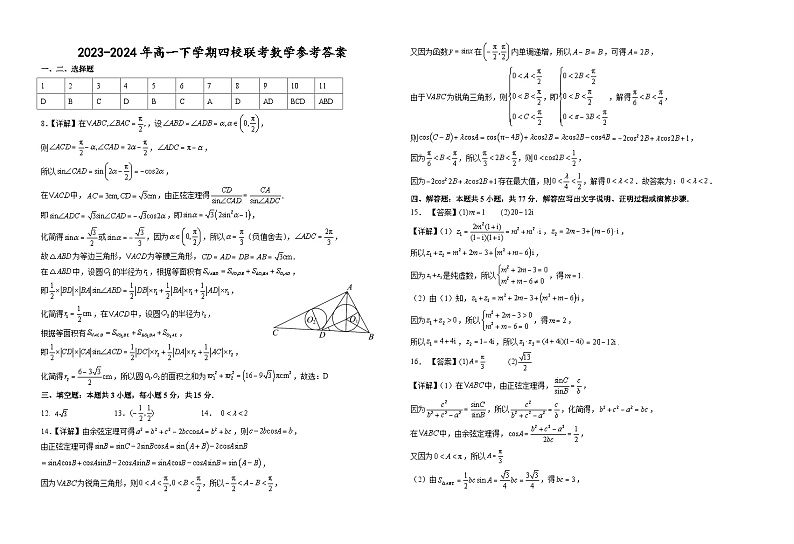 2023-2024年高一下学期四校联考数学参考答案
一、二、选择题
1 2 3 4 5 6 7 8 9 10 11
D B C D B C A D AD BCD ABD
8.【详解】在VABC,∠BAC = π/2, 设∠ABD = ∠ADB = α, α∈(0, π/2),
则∠ACD = π/2 - α, ∠CAD = 2α - π/2, ∠ADC = π - α,
所以sin∠CAD = sin(2α - π/2) = -cos2α,
在VACD中, AC = 3cm, CD = √3cm, 由正弦定理得 CD/sin∠CAD = CA/sin∠ADC.
即sin∠ADC = √3sin∠CAD = -√3cos2α, 即sinα = √3(2sin²α - 1),
化简得sinα = √3/2或sinα = -√3/3, 因为α∈(0, π/2), 所以α = π/3(负值舍去), ∠ADC = 2π/3,
故△ABD为等边三角形, VACD为等腰三角形, CD = AD = DB = AB = √3cm.
在△ABD中, 设圆O₁的半径为r₁, 根据等面积有
即1/2×|BD|×|BA|sin∠ABD = 1/2|DB|×r₁ + 1/2|BA|×r₁ + 1/2|AD|×r₁,
化简得r₁ = 1/2cm, 在VACD中, 设圆O₂的半径为r₂,
根据等面积有
即1/2×|CD|×|CA|sin∠ACD = 1/2|DC|×r₂ + 1/2|DA|×r₂ + 1/2|AC|×r₂,
化简得r₂ = (6-3√3)/2 cm, 所以圆O₁,O₂的面积之和为πr₁² + πr₂² = (16-9√3)πcm², 故选: D
A
O₂ O₁
C D B
三、填空题: 本题共3小题, 每小题5分, 共15分.
12. 4√3 13. (-1/2, 1/2) 14. 0<λ<2
14.【详解】由余弦定理可得a² = b² + c² - 2bccosA = b² + bc, 则c - 2bcosA = b,
由正弦定理可得sinB = sinC - 2sinBcosA = sin(A + B) - 2cosAsinB
= sinAcosB + cosAsinB - 2cosAsinB = sinAcosB - cosAsinB = sin(A - B),
因为VABC为锐角三角形, 则0<A<π/2, 0<B<π/2, 所以-π/2<A-B<π/2,
又因为函数y = sinx在(-π/2, π/2)内单调递增, 所以A - B = B, 可得A = 2B,
由于VABC为锐角三角形, 则{0<A<π/2 0<B<π/2 0<C<π/2, 即{0<2B<π/2 0<B<π/2 0<π-3B<π/2, 解得π/6<B<π/4,
则cos(C-B) + λcosA = cos(π-4B) + λcos2B = λcos2B - cos4B = -2cos²2B + λcos2B + 1,
因为π/6<B<π/4, 所以π/3<2B<π/2, 则0<cos2B<1/2,
因为-2cos²2B + λcos2B + 1存在最大值, 则0<λ/4<1/2, 解得0<λ<2. 故答案为: 0<λ<2.
四、解答题: 本题共5小题, 共77分. 解答应写出文字说明、证明过程或演算步骤.
15. 【答案】(1)m = 1 (2)20-12i
【详解】(1) z₁ = 2m²(1+i)/(1-i)(1+i) = m² + m²·i, z₂ = 2m - 3 + (m-6)·i,
所以z₁ + z₂ = m² + 2m - 3 + (m² + m - 6)i,
因为z₁ + z₂是纯虚数, 所以{m² + 2m - 3 = 0 m² + m - 6 ≠ 0, 得m = 1.
(2) 由(1)知, z₁ + z₂ = m² + 2m - 3 + (m² + m - 6)i,
因为z₁ + z₂ > 0, 所以{m² + 2m - 3 > 0 m² + m - 6 = 0, 得m = 2,
所以z₁ = 4 + 4i, z₂ = 1 - 4i, 所以z₁·z₂ = (4+4i)(1-4i) = 20-12i.
16. 【答案】(1)A = π/3 (2) √13/2
【详解】(1) 在VABC中, 由正弦定理得, sinC/sinB = c/b,
因为c²/(b² + c² - a²) = sinC/sinB, 所以c²/(b² + c² - a²) = c/b, 化简得, b² + c² - a² = bc,
在VABC中, 由余弦定理得, cosA = (b² + c² - a²)/2bc = 1/2,
又因为0<A<π, 所以A = π/3
(2) 由S△ABC = 1/2 bc sin A = √3/4 bc = 3√3/4, 得bc = 3,